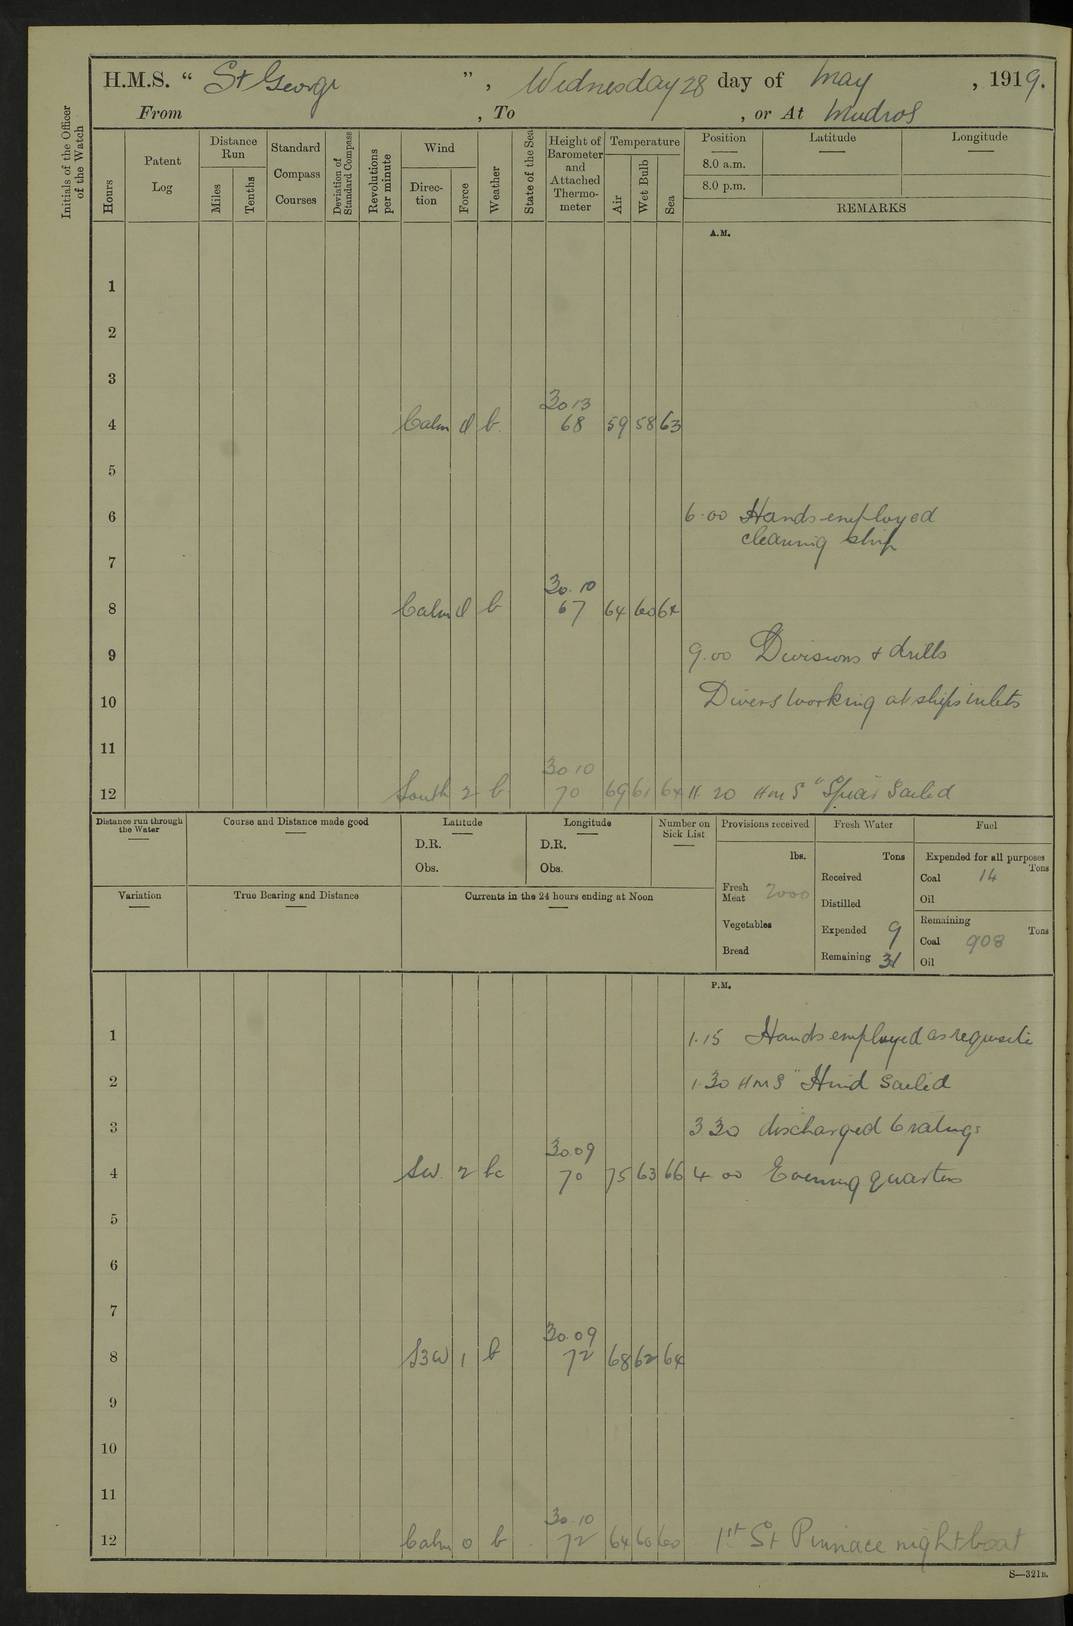 H.M.S. “ St George ” , Wednesday 28 day of May , 1919.
From , To , or At Mudros
Initials of the Officer of the Watch
Hours
Patent Log
Distance Run
Miles
Tenths
Standard Compass Courses
Deviation of Standard Compass
Revolutions per minute
Wind
Direc-tion
Force
Weather
State of the Sea
Height of Barometer and Attached Thermo-meter
Temperature
Air
Wet Bulb
Sea
Position Latitude Longitude
8.0 a.m.
8.0 p.m.
REMARKS
A.M.
1
2
3
30 13
4 Calm 0 b. 68 59 58 63
5
6 6.00 Hands employed
cleaning ship
7
30.10
8 Calm 0 b 67 64 60 64
9 9.00 Divisions & drills
10 Divers working at ships inlets
11
30 10
12 South 2 b 70 69 61 64 11 20 HMS "Spear Sailed
Distance run through the Water
Course and Distance made good
Latitude
D.R.
Obs.
Longitude
D.R.
Obs.
Number on Sick List
Provisions received
lbs.
Fresh Meat 2000
Vegetables
Bread
Fresh Water
Tons
Received
Distilled
Expended 9
Remaining 31
Fuel
Expended for all purposes
Tons
Coal 14
Oil
Remaining
Tons
Coal 908
Oil
Variation
True Bearing and Distance
Currents in the 24 hours ending at Noon
P.M.
1 1.15 Hands employed as requisite
2 1.30 HMS "Hind Sailed
3 3 30 discharged 6 ratings
30.09
4 SW. 2 bc 70 75 63 66 4 00 Evening quarters
5
6
7
30.09
8 SBW 1 b 72 68 62 64
9
10
11
30.10
12 Calm 0 b 72 64 60 60 1st St Pinnace night boat
S—321B.